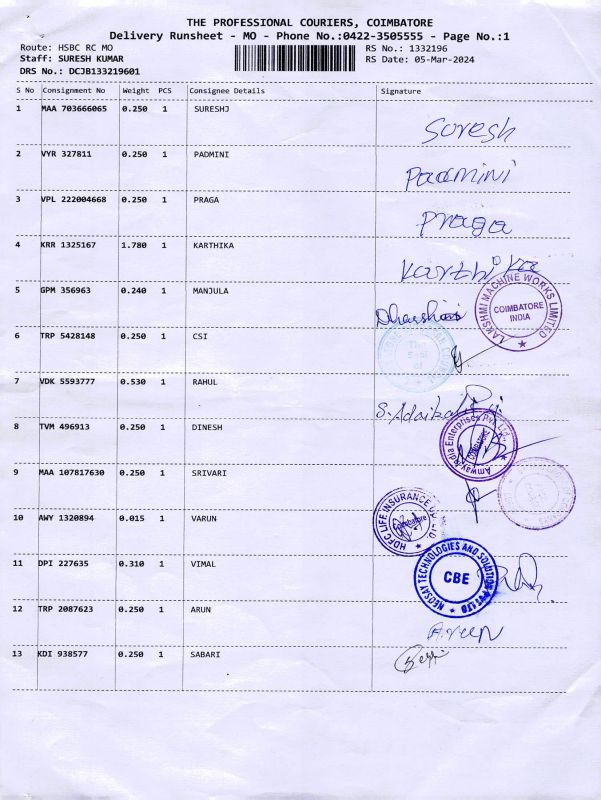 THE PROFESSIONAL COURIERS, COIMBATORE
Delivery Runsheet - MO - Phone No.:0422-3505555 - Page No.:1
Route: HSBC RC MO RS No.: 1332196
Staff: SURESH KUMAR RS Date: 05-Mar-2024
DRS No.: DCJB133219601
S No Consignment No Weight PCS Consignee Details Signature
1 MAA 703666065 0.250 1 SURESHJ
Suresh
2 VYR 327811 0.250 1 PADMINI
Padmini
3 VPL 222004668 0.250 1 PRAGA
Praga
4 KRR 1325167 1.780 1 KARTHIKA
Karthika
5 GPM 356963 0.240 1 MANJULA
LAKSHMI MACHINE WORKS LIMITED
COIMBATORE
INDIA
6 TRP 5428148 0.250 1 CSI
The
Seal
of
7 VDK 5593777 0.530 1 RAHUL
8 TVM 496913 0.250 1 DINESH
Amway India Enterprises Pvt. Ltd.
9 MAA 107817630 0.250 1 SRIVARI
10 AWY 1320894 0.015 1 VARUN
HDFC LIFE INSURANCE CO LTD
Coimbatore
11 DPI 227635 0.310 1 VIMAL
NEOSAY TECHNOLOGIES AND SOLUTIONS PVT LTD
CBE
12 TRP 2087623 0.250 1 ARUN
13 KDI 938577 0.250 1 SABARI